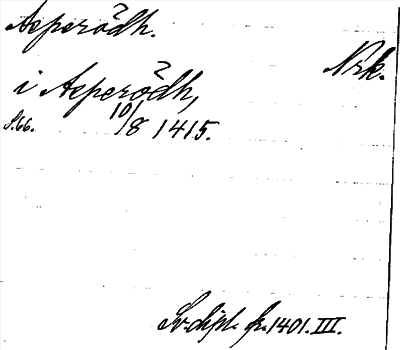 Aeperödh.
Nrk.
i Aeperödh,
S. 66.
10/8 1415.
Sv. dipl. fr. 1401. III.